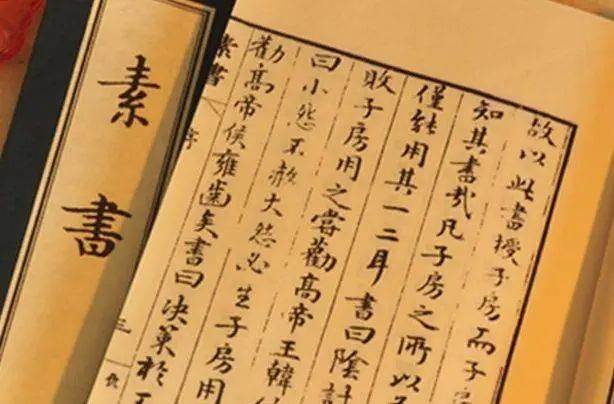 故以此書授子房而子
知其書哉凡子房之所以
僅能用其一二耳書曰陰計
敗子房用之嘗勸高帝王韓
曰小怨不赦大怨必生子房用
勸高帝侯雍齒矣書曰決策於
素書
序
三
素書